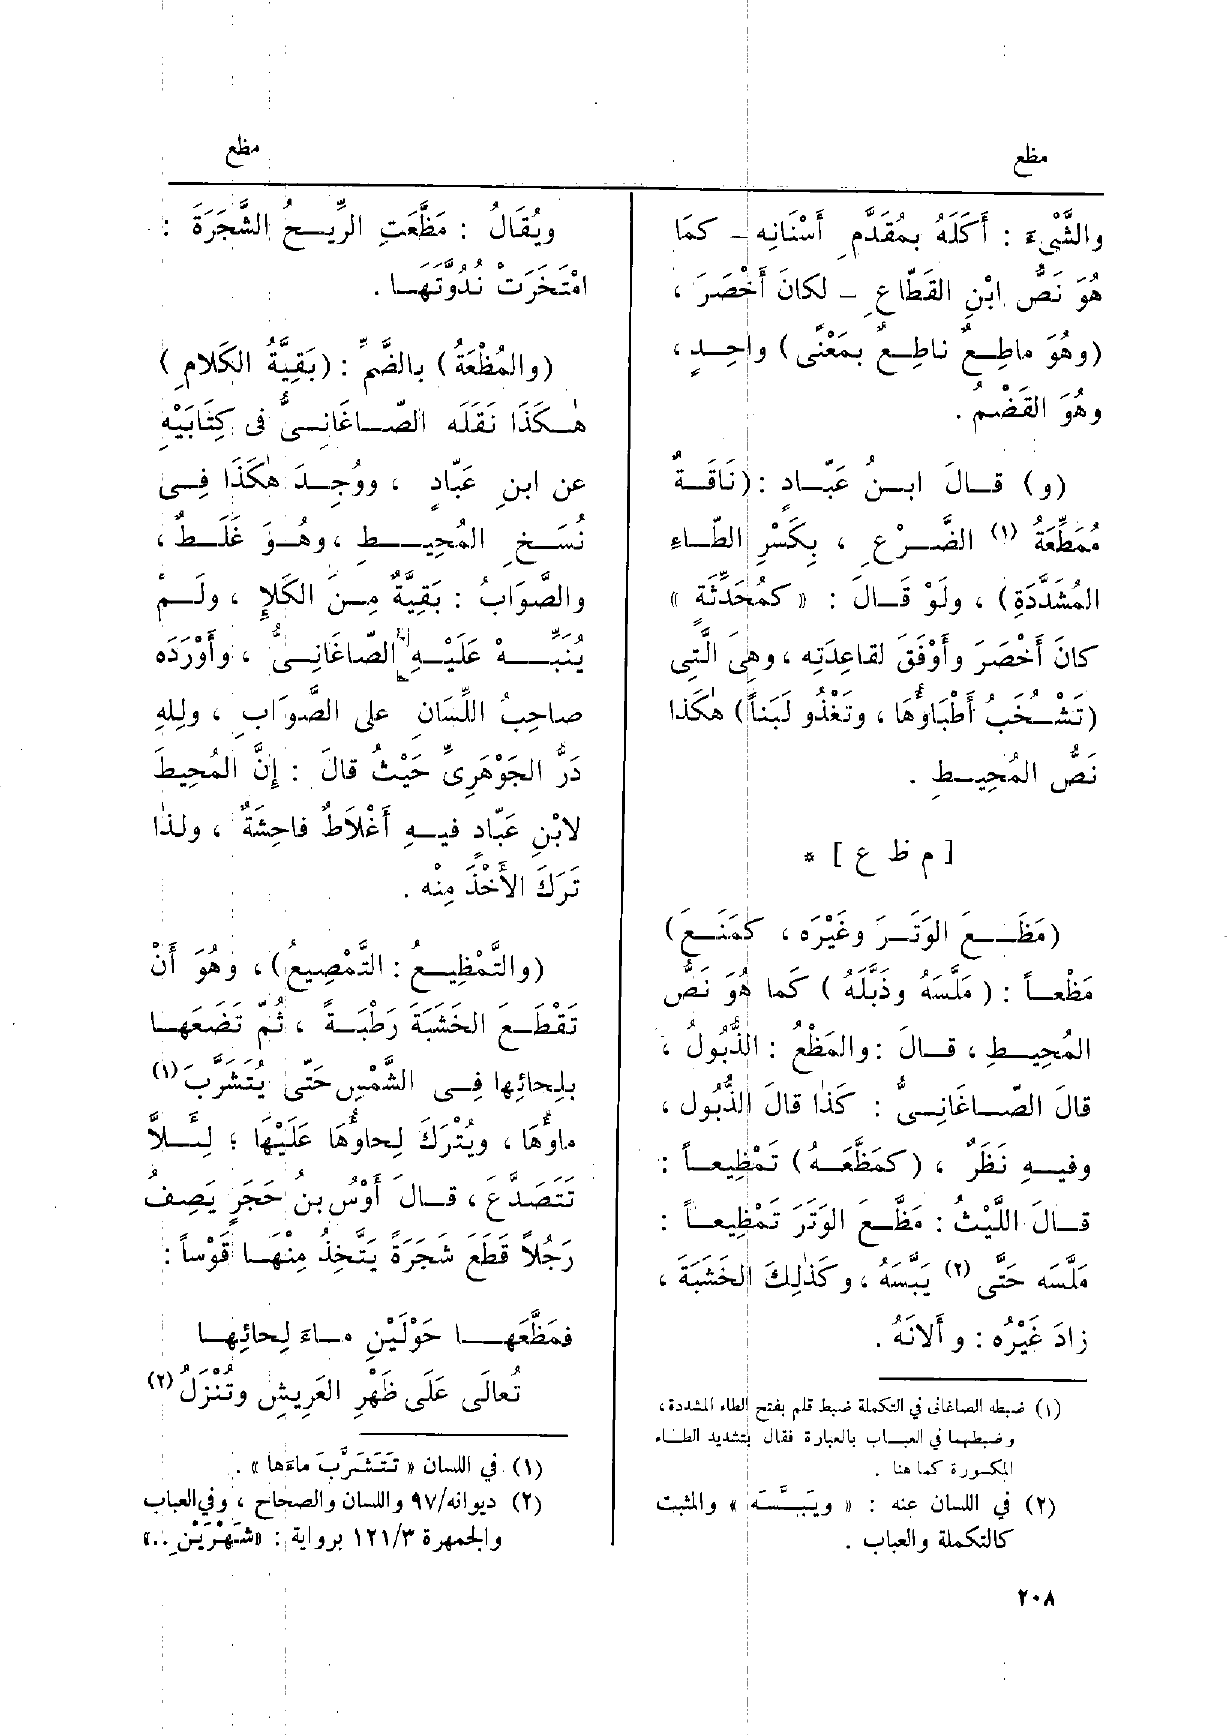 مظع
مظع
والشَّىْءَ : أَكَلَهُ بمُقَدَّمِ أَسْنَانِه – كَمَا
هُوَ نَصُّ ابْنِ القَطّاعِ – لكانَ أَخْصَرَ ،
(وهُوَ ماطِــعٌ ناطِــعٌ بمَعْنًى) واحِــدٍ ،
وهُوَ القَضْمُ .
(و) قــالَ ابــنُ عَبّــادٍ : (نَاقَــةٌ
مُمَطِّعَةُ (١) الضَّــرْعِ ، بِكَسْرِ الطّــاءِ
المُشَدَّدَةِ) ، ولَوْ قَــالَ : « كمُحَدِّثَةٍ »
كانَ أَخْصَرَ وأَوْفَقَ لقاعِدَتِه ، وهِىَ الَّتِى
(تَشْــخُبُ أَطْبَاؤُهَا ، وتَغْذُو لَبَناً) هٰكَذا
نَصُّ المُحِيــطِ .
[ م ظ ع ] *
(مَظَــعَ الوَتَــرَ وغَيْرَه ، كمَنَــعَ)
مَظْعــاً : (مَلَّسَهُ وذَبَّلَهُ ) كَما هُوَ نَصُّ
المُحِيــطِ ، قــالَ : والمَظْعُ : الذُّبُولُ ،
قالَ الصّــاغَانِــىُّ : كَذٰا قالَ الذُّبُول ،
وفيــهِ نَظَرٌ ، (كمَظَّعَــهُ) تَمْظِيعــاً :
قــالَ اللَّيْثُ : مَظَّــعَ الوَتَرَ تَمْظِيعــاً :
مَلَّسَه حَتَّى (٢) يَبَّسَهُ ، وكَذٰلِكَ الخَشَبَةَ ،
زادَ غَيْرُه : و أَلانَهُ .
(١) ضبطه الصاغانى في التكملة ضبط قلم بفتح الطاء المشددة ،
وضبطها في العبــاب بالعبارة فقال بتشديد الطــاء
المكسورة كما هنا .
(٢) في اللسان عنه : « ويَبَسَّه » والمثبت
كالتكملة والعباب .
ويُقَالُ : مَظَّعَتِ الرِّيــحُ الشَّجَرَةَ :
امْتَخَرَتْ نُدُوَّتَهــا .
(والمُظْعَةُ) بالضَّمِّ : (بَقِيَّةُ الكَلامِ)
هٰــكَذَا نَقَلَه الصّــاغَانِــىُّ فى كِتَابَيْهِ
عن ابنِ عَبّادٍ ، ووُجِــدَ هٰكَذَا فِــى
نُسَــخِ المُحِيــطِ ، وهُــوَ غَلَــطٌ ،
والصَّوَابُ : بَقِيَّةٌ مِــنَ الكَلإِ ، ولَــمْ
يُنَبِّــهْ عَلَيْــهِ الصّاغَانِــىُّ ، وأَوْرَدَه
صاحِبُ اللِّسَانِ على الصَّوابِ ، ولِلهِ
دَرُّ الجَوْهَرِىِّ حَيْثُ قالَ : إِنَّ المُحِيطَ
لابْنِ عَبّادٍ فيــهِ أَغْلاطٌ فاحِشَةٌ ، ولذٰا
تَرَكَ الأَخْذَ مِنْه .
(والتَّمْظِيــعُ : التَّمْصِيعُ) ، وهُوَ أَنْ
تَقْطَــعَ الخَشَبَةَ رَطْبَــةً ، ثُمّ تَضَعَهــا
بلِحائِها فِــى الشَّمْسِ حَتَّى يُتَشَرَّبَ (١)
ماؤُهَا ، ويُتْرَكَ لِحاؤُهَا عَلَيْهَا ؛ لِئَــلاَّ
تَتَصَدَّعَ ، قــالَ أَوْسُ بنُ حَجَرٍ يَصِفُ
رَجُلاً قَطَعَ شَجَرَةً يَتَّخِذُ مِنْهَــا قَوْساً :
فمَظَّعَهــا حَوْلَيْنِ مــاءَ لِحائِهــا
تُعالَى عَلَى ظَهْرِ العَرِيشِ وتُنْزَلُ (٢)
(١) في اللسان « تَتَشَرَّبَ ماءَها » .
(٢) ديوانه/٩٧ واللسان والصحاح ، وفي العباب
والجمهرة ١٢١/٣ برواية : «شَهْرَيْنِ ..»
٢٠٨